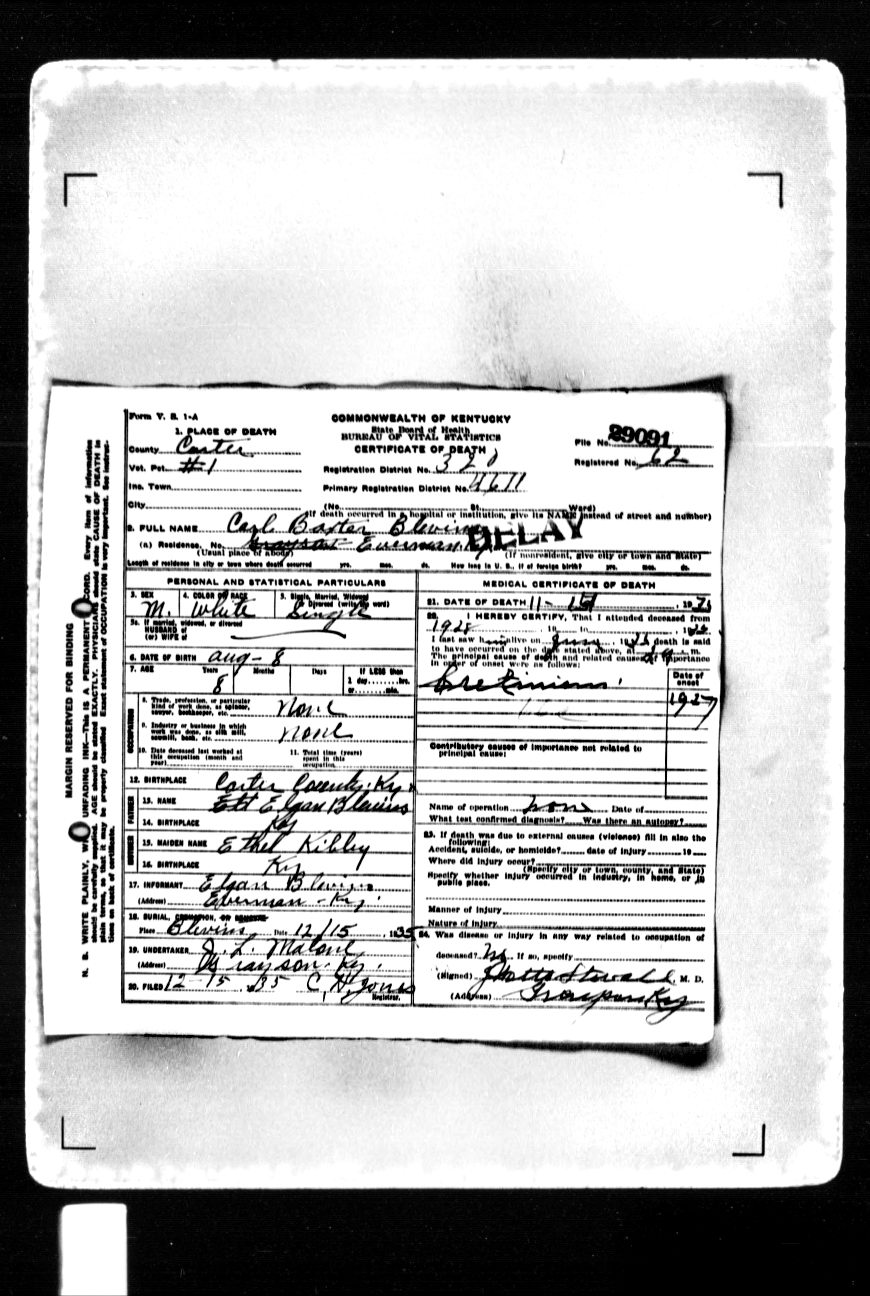 Form V. S. 1-A
COMMONWEALTH OF KENTUCKY
State Board of Health
BUREAU OF VITAL STATISTICS
CERTIFICATE OF DEATH
File No. 29091
Registered No. 62
1. PLACE OF DEATH
County Carter
Vot. Pct. #1
Registration District No. 320
Ins. Town
Primary Registration District No. 4611
City (No. St. Ward)
(If death occurred in a hospital or institution, give its NAME instead of street and number)
2. FULL NAME Carl Baxter Blevins
DELAY
(a) Residence. No. Grayson Everman Ky
(Usual place of abode) (If nonresident, give city or town and State)
Length of residence in city or town where death occurred yrs. mos. ds. How long in U. S., if of foreign birth? yrs. mos. ds.
PERSONAL AND STATISTICAL PARTICULARS
3. SEX M.
4. COLOR OR RACE White
5. Single, Married, Widowed or Divorced (write the word) Single
5a. If married, widowed, or divorced
HUSBAND of
(or) WIFE of
6. DATE OF BIRTH Aug - 8
7. AGE Years 8 Months Days If LESS than 1 day hrs. or min.
OCCUPATION
8. Trade, profession, or particular kind of work done, as spinner, sawyer, bookkeeper, etc. None
9. Industry or business in which work was done, as silk mill, sawmill, bank, etc. None
10. Date deceased last worked at this occupation (month and year)
11. Total time (years) spent in this occupation
12. BIRTHPLACE Carter County, Ky
FATHER
13. NAME Elgan Blevins
14. BIRTHPLACE Ky
MOTHER
15. MAIDEN NAME Ethel Kibbey
16. BIRTHPLACE Ky
17. INFORMANT Elgan Blevins
(Address) Everman - Ky.
18. BURIAL, CREMATION, OR REMOVAL
Place Blevins Date 12/15 1935
19. UNDERTAKER J. L. Malone
(Address) Grayson, Ky.
20. FILED 12-15 1935 C. H. Jones
Registrar.
MEDICAL CERTIFICATE OF DEATH
21. DATE OF DEATH 11-
22. I HEREBY CERTIFY, That I attended deceased from
1928 , 19 to , 19
I last saw him alive on June , 19 death is said
to have occurred on the date stated above, at m.
The principal cause of death and related causes of importance
in order of onset were as follows:
Date of onset
Cretinism 1927
Contributory causes of importance not related to
principal cause:
Name of operation none Date of
What test confirmed diagnosis? Was there an autopsy?
23. If death was due to external causes (violence) fill in also the
following:
Accident, suicide, or homicide? date of injury 19
Where did injury occur?
(Specify city or town, county, and State)
Specify whether injury occurred in industry, in home, or in
public place.
Manner of injury
Nature of injury
24. Was disease or injury in any way related to occupation of
deceased? No If so, specify
(Signed) Stovall, M. D.
(Address) Grayson Ky
MARGIN RESERVED FOR BINDING
N. B. WRITE PLAINLY, WITH UNFADING INK—THIS IS A PERMANENT RECORD. Every item of information
should be carefully supplied. AGE should be stated EXACTLY. PHYSICIANS should state CAUSE OF DEATH in
plain terms, so that it may be properly classified. Exact statement of OCCUPATION is very important. See instruc-
tions on back of certificate.